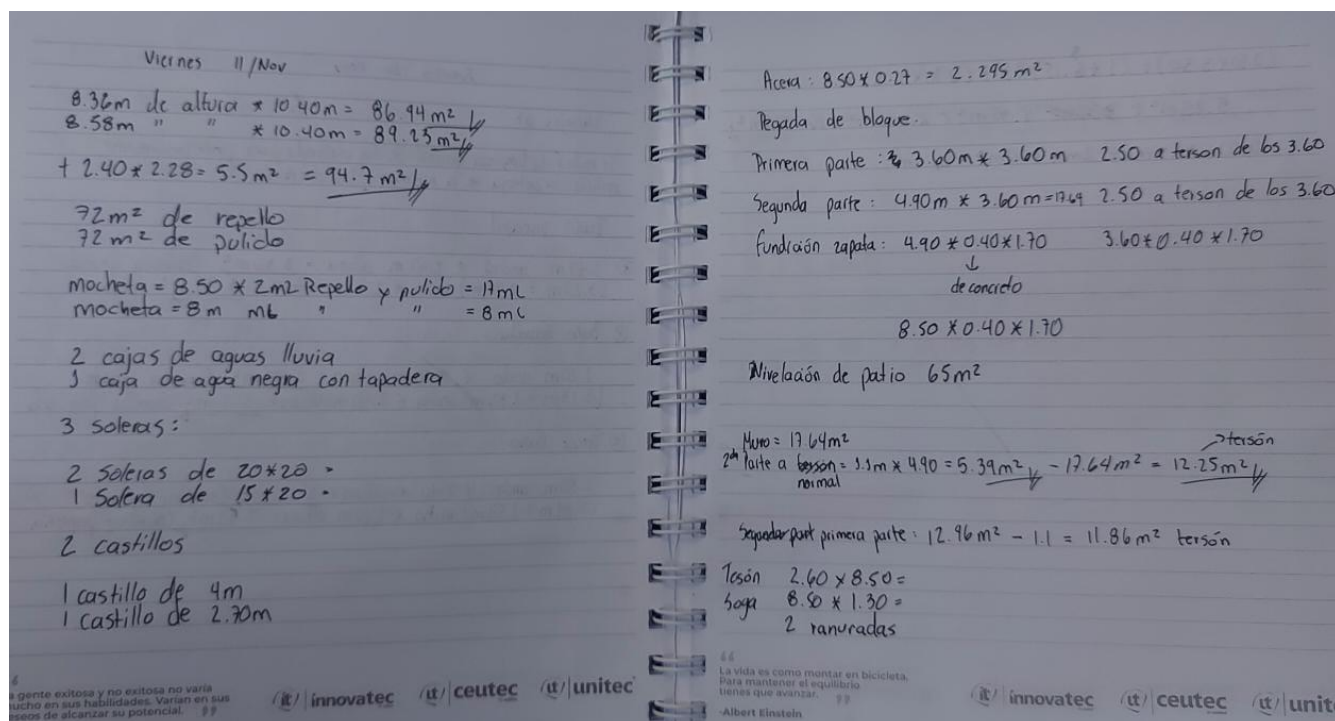 Viernes 11/Nov
8.36m de altura * 10.40m = 86.94 m²
8.58m " " * 10.40m = 89.23 m²
+ 2.40 * 2.28 = 5.5 m² = 94.7 m²
72m² de repello
72 m² de pulido
mocheta = 8.50 * 2m2 Repello y pulido = 17ml
mocheta = 8m ml " " = 8ml
2 cajas de aguas lluvia
1 caja de agua negra con tapadera
3 soleras:
2 Soleras de 20*20 •
1 Solera de 15*20 •
2 castillos
1 castillo de 4m
1 castillo de 2.70m
a gente exitosa y no exitosa no varía
ucho en sus habilidades. Varían en sus
seos de alcanzar su potencial.
(it/) innovatec (ut/) ceutec (ut/) unitec
Acera: 8.50 * 0.27 = 2.295 m²
Pegada de bloque.
Primera parte: 3.60m * 3.60m 2.50 a terson de los 3.60
Segunda parte: 4.90m * 3.60m = 17.64 2.50 a terson de los 3.60
fundición zapata: 4.90 * 0.40 * 1.70 3.60 * 0.40 * 1.70
↓
de concreto
8.50 X 0.40 * 1.70
Nivelación de patio 65m²
Muro = 17.64m² → tersón
2da Parte a = 1.1m * 4.90 = 5.39m² - 17.64 m² = 12.25m²
normal
primera parte: 12.96 m² - 1.1 = 11.86 m² tersón
Tesón 2.60 x 8.50 =
Soga 8.50 * 1.30 =
2 ranuradas
La vida es como montar en bicicleta.
Para mantener el equilibrio
tienes que avanzar.
-Albert Einstein
(it/) innovatec (ut/) ceutec (ut/) unit